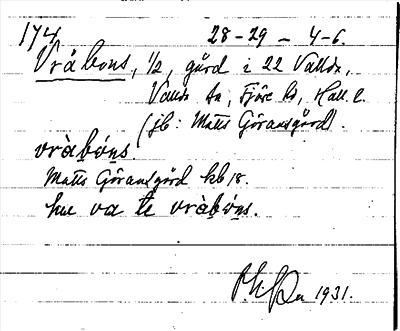 174 28-29 - 4-6.
Vråbons, 1/2, gård i 22 Valldα,
Vallda sn, Fjäre hd, Hall. l.
(jb: Matts Göransgård).
vràbóns.
Matts Göransgård kb 18.
hu va te vràbóns.
1931.